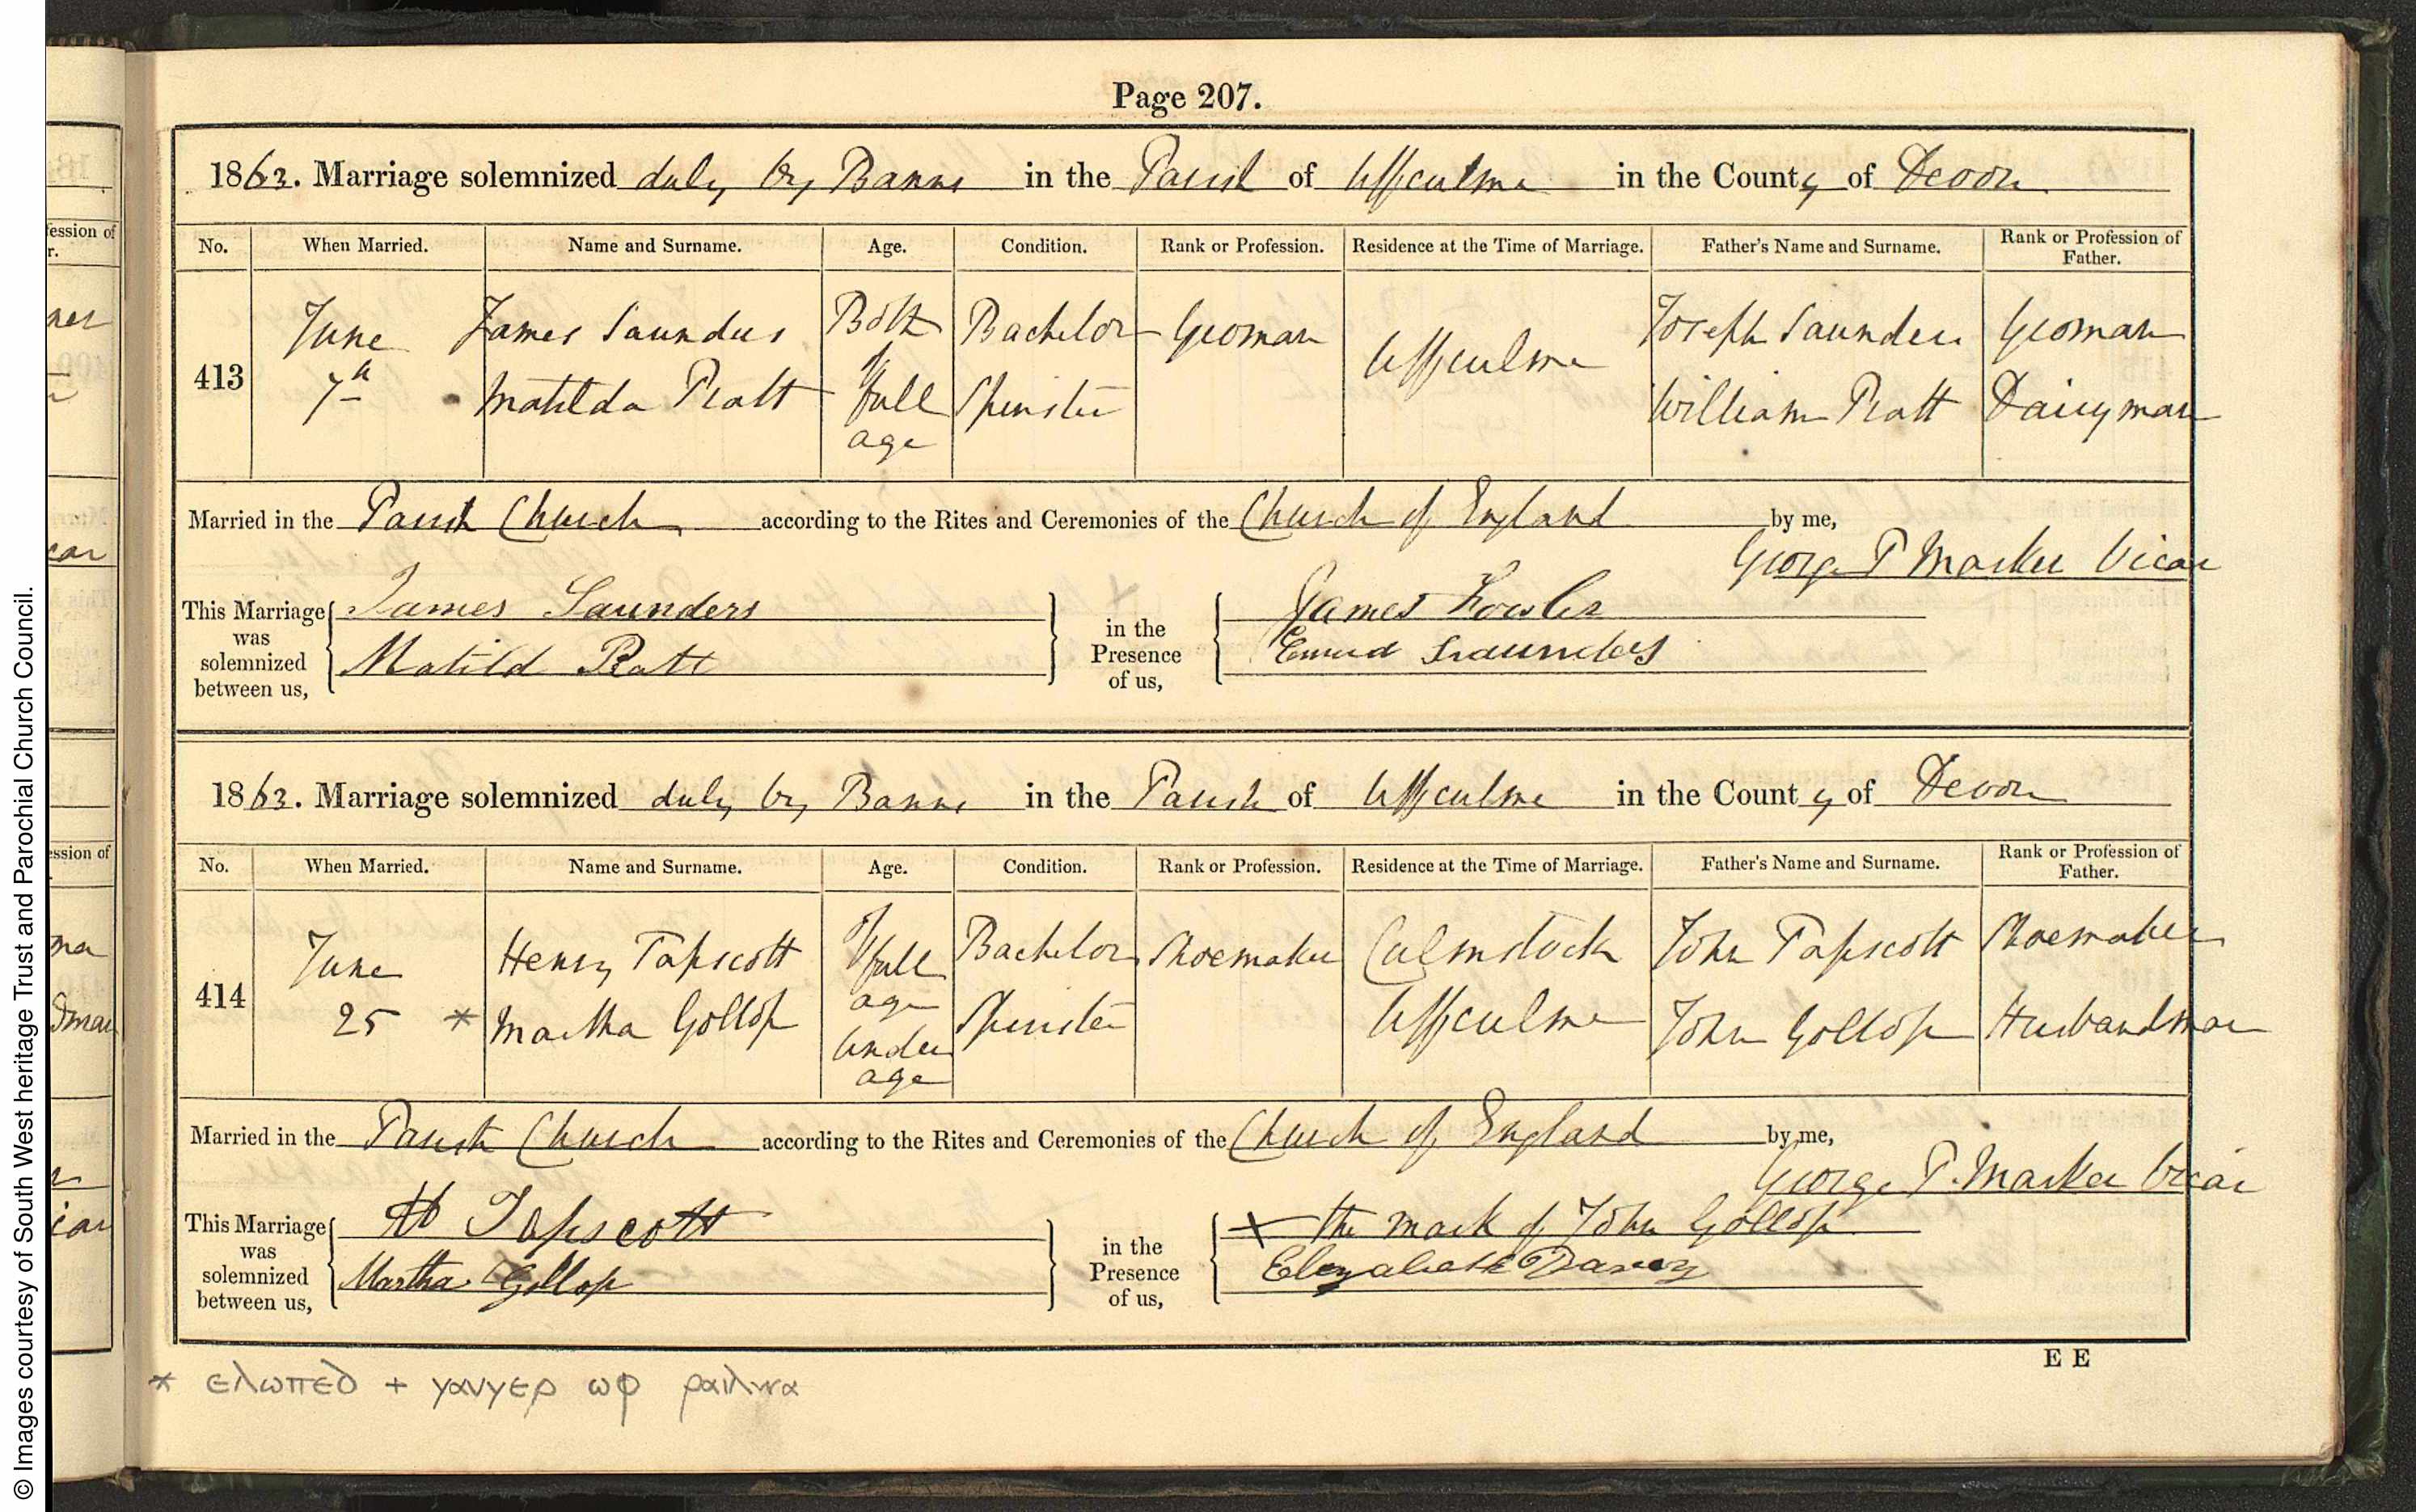 Page 207.
1863. Marriage solemnized duly by Banns in the Parish of Uffculme in the County of Devon
No. When Married. Name and Surname. Age. Condition. Rank or Profession. Residence at the Time of Marriage. Father's Name and Surname. Rank or Profession of Father.
413 June 7th James Saunders Both of full age Bachelor Yeoman Uffculme Joseph Saunders Yeoman
Matilda Pratt Spinster William Pratt Dairyman
Married in the Parish Church according to the Rites and Ceremonies of the Church of England by me,
George T Marker Vicar
This Marriage was solemnized between us, James Saunders in the Presence of us, James Fowler
Matild Pratt Saunders
1863. Marriage solemnized duly by Banns in the Parish of Uffculme in the County of Devon
No. When Married. Name and Surname. Age. Condition. Rank or Profession. Residence at the Time of Marriage. Father's Name and Surname. Rank or Profession of Father.
414 June 25 Henry Tapscott Of full age Bachelor Shoemaker Culmstock John Tapscott Shoemaker
* Martha Gollop Under age Spinster Uffculme John Gollop Husbandman
Married in the Parish Church according to the Rites and Ceremonies of the Church of England by me,
George T. Marker Vicar
This Marriage was solemnized between us, H Tapscott in the Presence of us, X the mark of John Gollop
Martha Gollop Elizabeth
E E
* ελωπεδ + γανγερ ωφ
© Images courtesy of South West heritage Trust and Parochial Church Council.